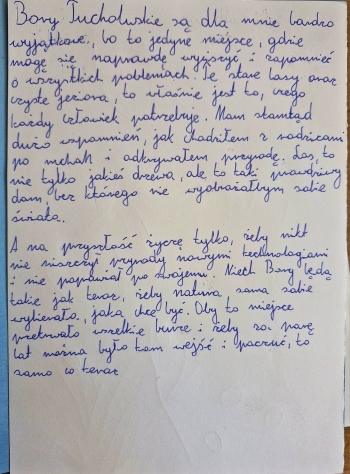 Bory Tucholskie są dla mnie bardzo
wyjątkowe, bo to jedyne miejsce, gdzie
mogę się naprawdę wyciszyć i zapomnieć
o wszystkich problemach. Te stare lasy oraz
czyste jeziora, to właśnie jest to, czego
każdy człowiek potrzebuje. Mam stamtąd
dużo wspomnień, jak chodziłem z rodzicami
po mchach i odkrywałem przyrodę. Las, to
nie tylko jakieś drzewa, ale to taki prawdziwy
dom, bez którego nie wyobrażałbym sobie
świata.
A na przyszłość życzę tylko, żeby nikt
nie niszczył przyrody nowymi technologiami
i nie poprawiał po swojemu. Niech Bory będą
takie jak teraz, żeby natura sama sobie
wybierała, jaka chce być. Oby to miejsce
przetrwało wszelkie burze i żeby za parę
lat można było tam wejść i poczuć, to
samo co teraz